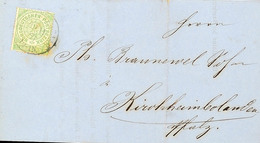 Herrn
Ph. Braunswel Sohn
à
Kirchheimbolanden
Pfalz.